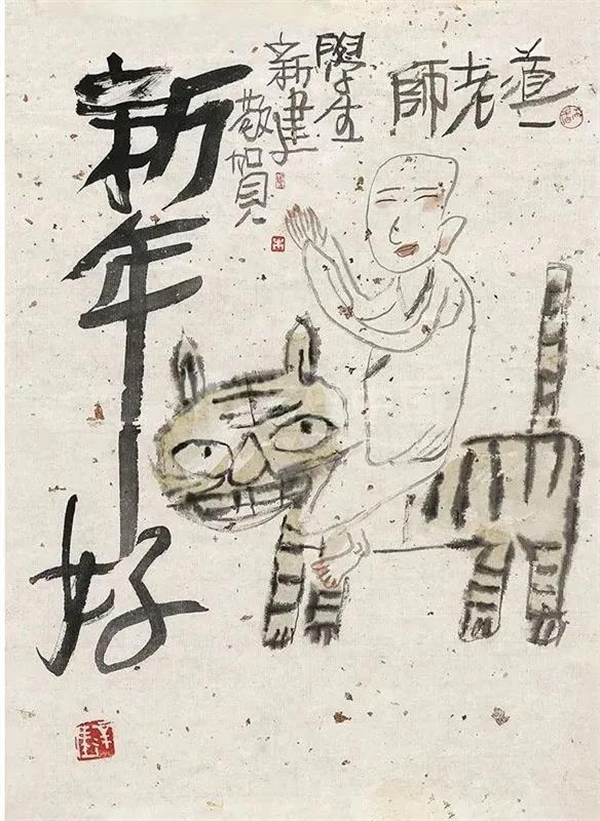 道一
老師
學生
新建
敬賀
新年好